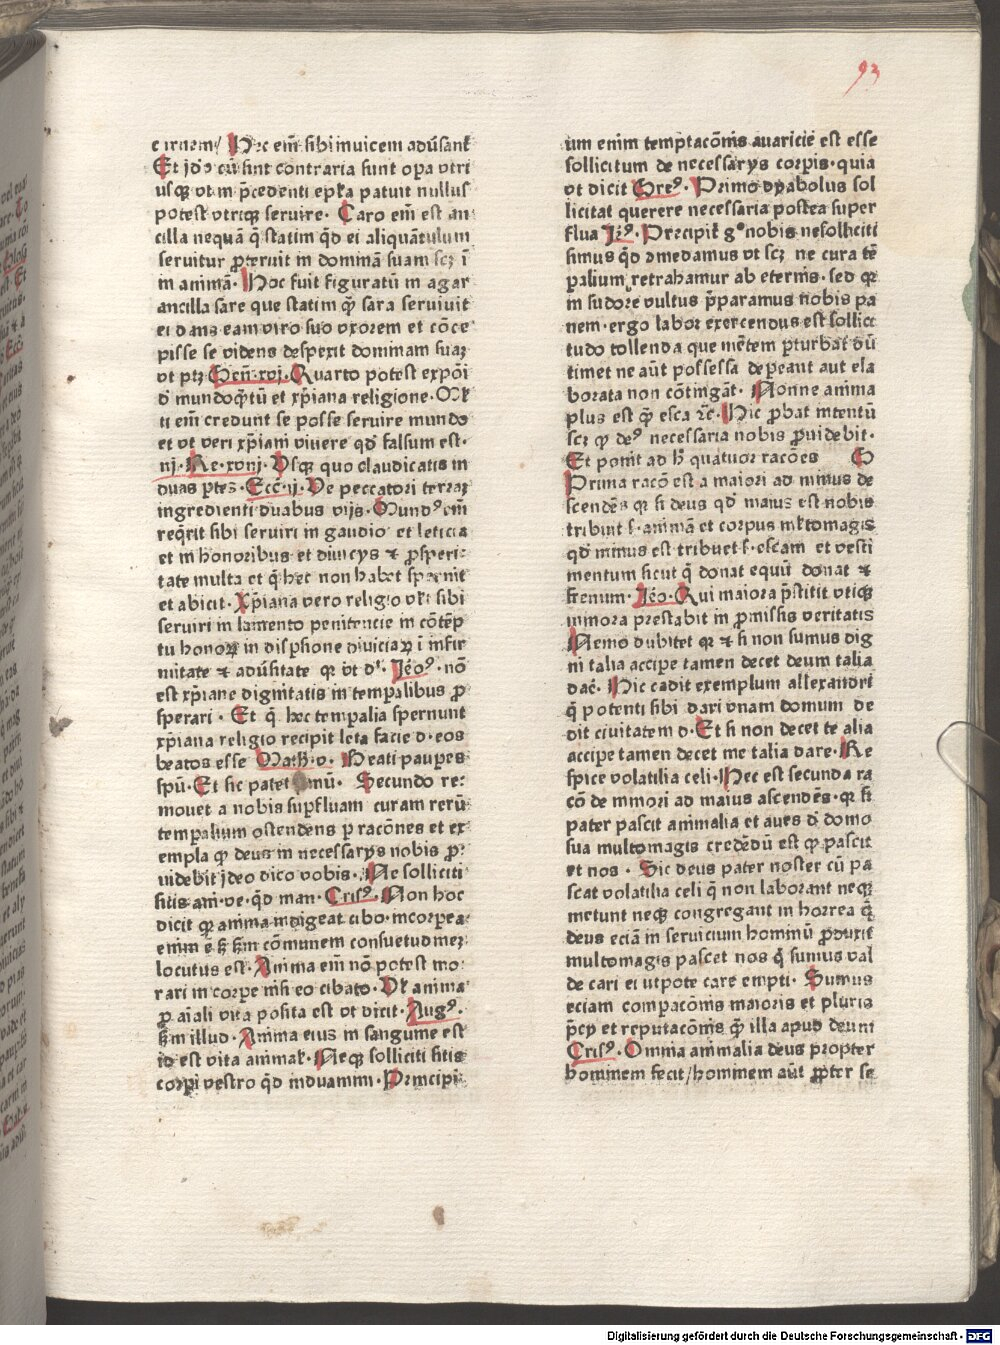 93
carnem / Hec em̄ sibi inuicem aduˢant᷑
Et jdo cū sint contraria sunt oꝑa vtri
usqꝫ vt in p̄cedenti ep̄ła patuit nullus
potest vtriqꝫ seruire · Caro em̄ est an
cilla nequā q̄ statim qd̄ ei aliquātulum
seruitur ꝓteruit in dominā suam scꝫ ī
in animā · Hoc fuit figuratū in agar
ancilla sare que statim qꝫ sara seruiuit
ei dans eam viro suo vxorem et cōce
pisse se videns despexit dominam suaꝫ
vt ptꝫ Gen̄ · xvj · Quarto potest expōi
d̄ mundo qꝫtū et xp̄iana religione · Mł
ti em̄ credunt se posse seruire mundo
et vt veri xp̄iani viuere qd̄ falsum est ·
iij · Re · xviij · Vsqꝫ quo claudicatis in
duas ꝑtes · Ecc̄ · ij · Ve peccatori terraꝫ
ingredienti duabus vijs · Mundꝰ em̄
req̄rit sibi seruiri in gaudio et leticia
et in honoribus et diuicijs ⁊ ꝓsperi
tate multa et q̄ hec non habet spernit
et abicit · Xp̄iana vero religio vłt sibi
seruiri in lamento penitencie in cōtēp
tu honoꝝ in disp̄sione diuiciaꝝ ī infir
mitate ⁊ aduˢitate qꝛ vt dˢ · Jeoꝰ · nō
est xp̄iane dignitatis in temꝑalibus ꝓ
sperari · Et q̄ hec temꝑalia spernunt
xp̄iana religio recipit leta facie d · eos
beatos esse Math · v · Beati pauꝑes
spū · Et sic patet pmū · Secundo re
mouet a nobis suꝑfluam curam rerū
temꝑalium ostendens ꝑ racōnes et ex
empla qꝫ deus in necessarijs nobis ꝓ
uidebit jdeo dico vobis · Ne solliciti
sitis ani · ve · qd̄ man · Crisꝰ · Non hoc
dicit qꝫ anima indigeat cibo · incorpea
enim ē sꝫ sꝫm cōmunem consuetudineꝫ
locutus est · Anima em̄ nō potest mo
rari in corpe nisi eo cibato · Vł anima
ꝓ aīali vita posita est vt dicit · Augꝰ ·
sꝫm illud · Anima eius in sanguine est
id est vita animał · Neqꝫ solliciti sitis
corpi vestro qd̄ induamini · Principi
um enim temptacōnis auaricie est esse
sollicitum de necessarijs corpis · quia
vt dicit Greꝰ · Primo dyabolus sol
licitat querere necessaria postea super
flua Jeꝰ · Precipit᷑ gͦ nobis ne solliciti
simus qd̄ comedamus vt scꝫ ne cura tē
ꝑalium retrahamur ab eternis · sed qꝛ
in sudore vultus p̄paramus nobis pa
nem · ergo labor exercendus est sollici
tudo tollenda que mētem ꝑturbat dū
timet ne aūt possessa deꝑeant aut ela
borata non cōtingāt · Nonne anima
plus est qꝫ esca ⁊c̄ · Hic ꝓbat intentū
scꝫ qꝫ deꝰ necessaria nobis ꝓuidebit ·
Et ponit ad hͦ quatuor racōes
Prima racō est a maiori ad minus de
scendēs qꝛ si deus qd̄ maius est nobis
tribuit s · animā et corpus mł tomagis
qd̄ minus est tribuet s · escam et vesti
mentum sicut q̄ donat equū donat ⁊
frenum · Jeo · Qui maiora p̄stitit vtiqꝫ
minora prestabit in ꝓmissis veritatis
Nemo dubitet qꝛ ⁊ si non sumus dig
ni talia accipe tamen decet deum talia
daē · Hic cadit exemplum allexandri
q̄ potenti sibi dari vnam domum de
dit ciuitatem d · Et si non decet te alia
accipe tamen decet me talia dare · Re
spice volatilia celi · Hec est secunda ra
cō de minori ad maius ascendēs · qꝛ si
pater pascit animalia et aues d̄ domo
sua multomagis credēdū est qꝫ pascit
et nos · Sic deus pater noster cū pa
scat volatilia celi q̄ non laborant neqꝫ
metunt neqꝫ congregant in horrea q̄
deus eciā in seruicium hominū ꝓduxit
multomagis pascet nos q̄ sumus val
de cari ei vtpote care empti · Sumus
eciam compacōnis maioris et pluris
p̄cij et reputacōnis qꝫ illa apud deum
Crisꝰ · Omnia animalia deus propter
hominem fecit / hominem aūt ꝓpter se
Digitalisierung gefördert durch die Deutsche Forschungsgemeinschaft - DFG